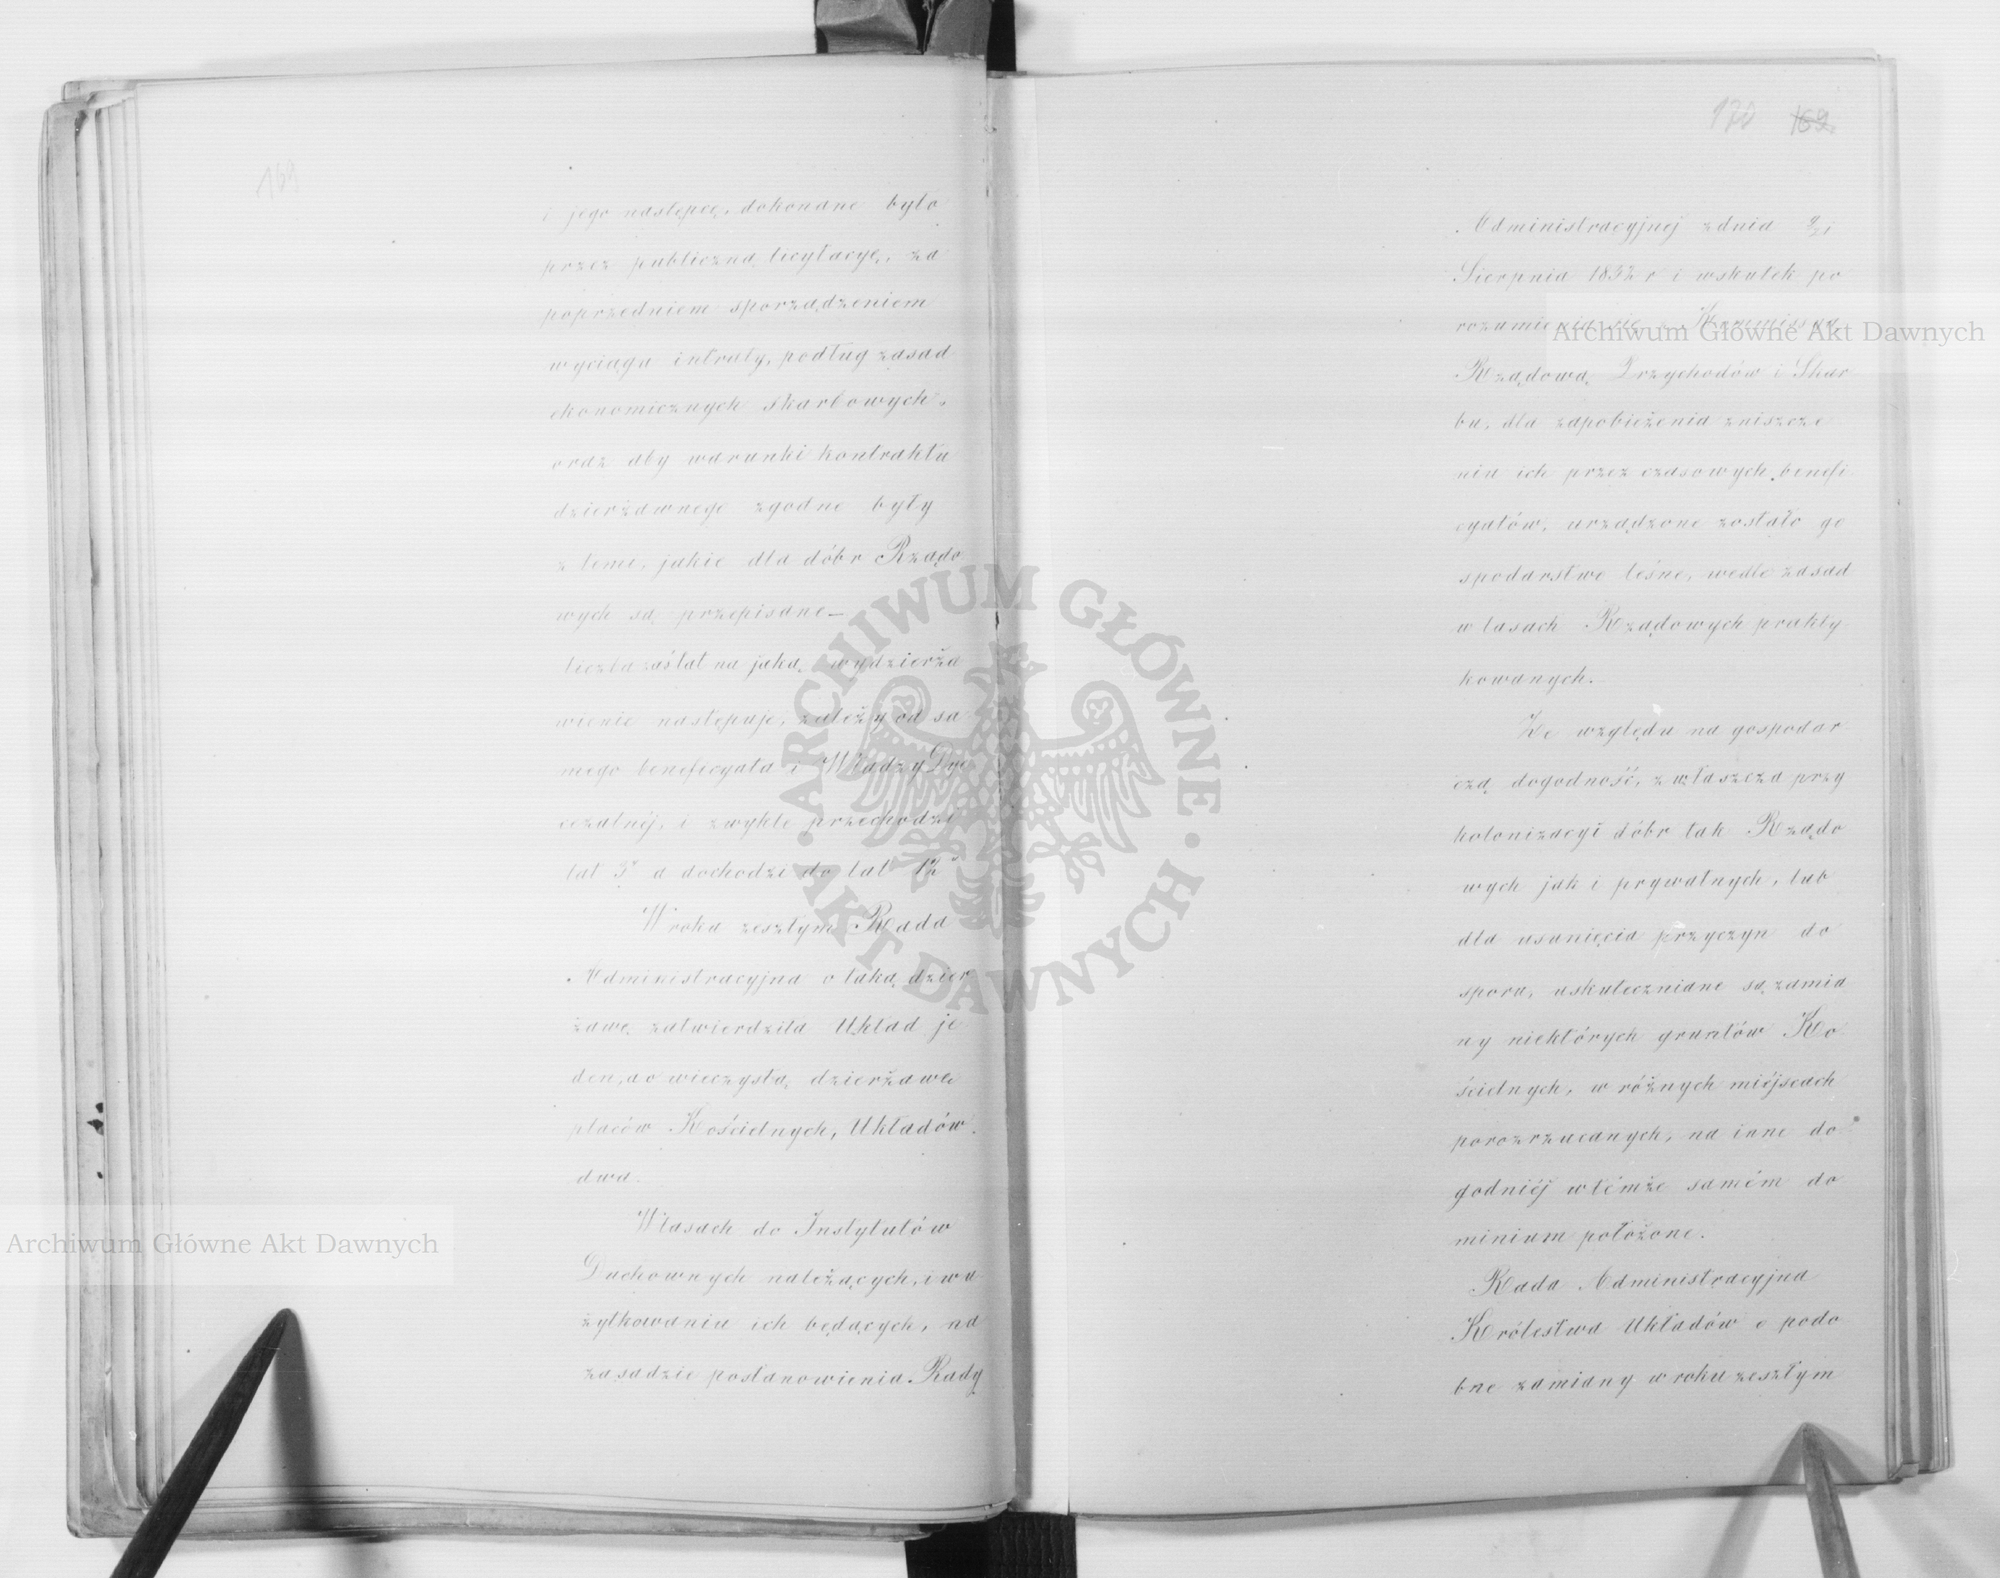 169
i jego następcę, dokonane było
przez publiczną licytacyę, za
poprzedniem sporządzeniem
wyciągu intraty, podług zasad
ekonomicznych skarbowych,
oraz aby warunki kontraktu
dzierżawnego zgodne były
z temi, jakie dla dóbr Rządo
wych są przepisane –
liczba zaś lat na jaką wydzierża
wienie następuje, zależy od sa
mego beneficyata i Władzy Dye
cezalnéj, i zwykle przechodzi
lat 3 a dochodzi do lat 12
W roku zeszłym Rada
Administracyjna o taką dzier
żawę zatwierdziła Układ je
den, a o wieczystą dzierżawę
placów Kościelnych, Układów
dwa.
W lasach do Instytutów
Duchownych należących, i w u
żytkowaniu ich będących, na
zasadzie postanowienia Rady
170 169
Administracyjnej z dnia
Sierpnia 18 r i wskutek po
rozumienia się z Kommissyą
Rządową Przychodów i Skar
bu, dla zapobieżenia zniszcze
niu ich przez czasowych benefi
cyatów, urządzone zostało go
spodarstwo leśne, wedle zasad
w lasach Rządowych prakty
kowanych.
Ze względu na gospodar
czą dogodność, zwłaszcza przy
kolonizacyi dóbr tak Rządo
wych jak i prywatnych, lub
dla usunięcia przyczyn do
sporu, uskuteczniane są zamia
ny niektórych gruntów Ko
ścielnych, w różnych miéjscach
porozrzucanych, na inne do
godniéj w témże samém do
minium położone.
Rada Administracyjna
Królestwa Układów o podo
bne zamiany w roku zeszłym
Archiwum Główne Akt Dawnych
Archiwum Główne Akt Dawnych
ARCHIWUM GŁÓWNE · AKT DAWNYCH ·